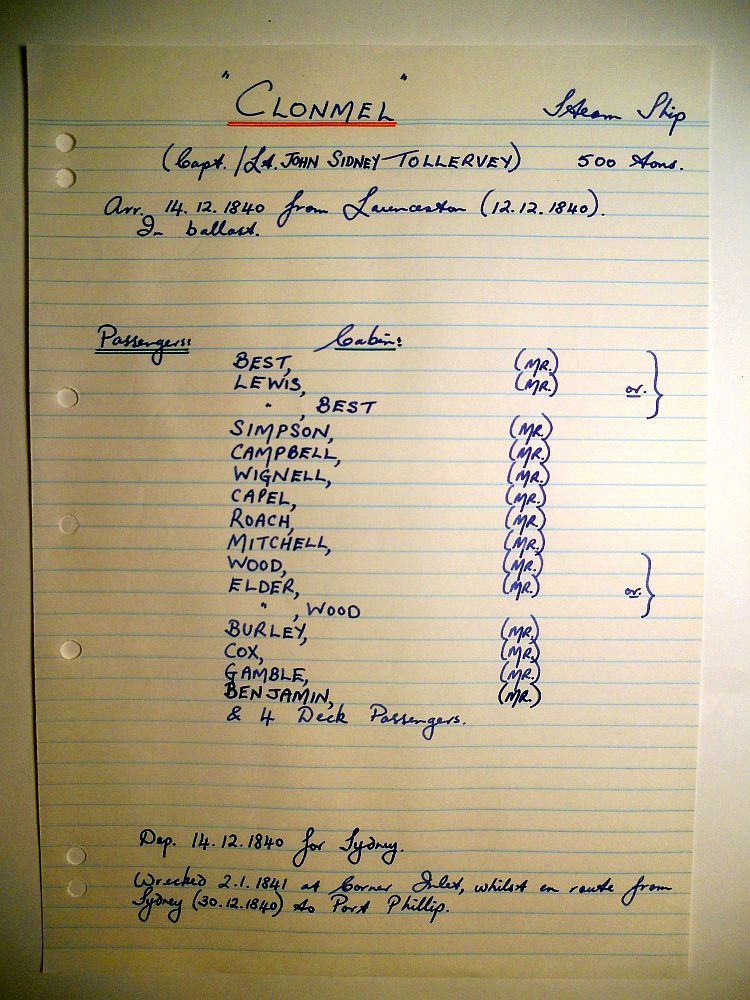 "CLONMEL" Steam Ship
(Capt./Lt. JOHN SIDNEY TOLLERVEY) 500 tons.
Arr. 14.12.1840 from Launceston (12.12.1840).
In ballast.
Passengers: Cabin:
BEST, (MR.)
LEWIS, (MR.) or. }
" , BEST
SIMPSON, (MR.)
CAMPBELL, (MR.)
WIGNELL, (MR.)
CAPEL, (MR.)
ROACH, (MR.)
MITCHELL, (MR.)
WOOD, (MR.)
ELDER, (MR.) or. }
" , WOOD
BURLEY, (MR.)
COX, (MR.)
GAMBLE, (MR.)
BENJAMIN, (MR.)
& 4 Deck Passengers.
Dep. 14.12.1840 for Sydney.
Wrecked 2.1.1841 at Corner Inlet, whilst en route from
Sydney (30.12.1840) to Port Phillip.